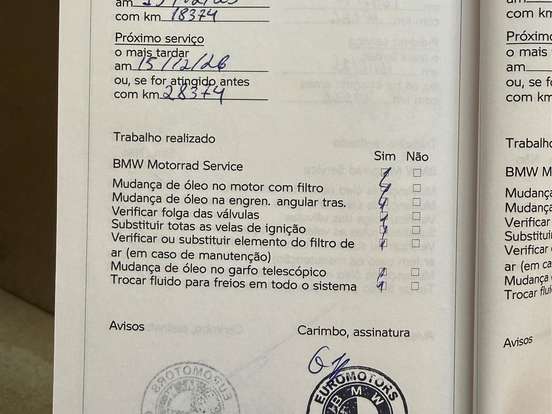 am
com km 18374
Próximo serviço
o mais tardar
am 15/12/26
ou, se for atingido antes
com km 28374
Trabalho realizado
Sim Não
BMW Motorrad Service
Mudança de óleo no motor com filtro
Mudança de óleo na engren. angular tras.
Verificar folga das válvulas
Substituir totas as velas de ignição
Verificar ou substituir elemento do filtro de
ar (em caso de manutenção)
Mudança de óleo no garfo telescópico
Trocar fluido para freios em todo o sistema
Avisos
Carimbo, assinatura
EUROMOTORS
BMW
com km
Próximo
o mais
am
ou, se f
com km
Trabalh
BMW M
Mudança
Mudança
Verificar
Substitui
Verificar
ar (em ca
Mudança
Trocar flui
Avisos